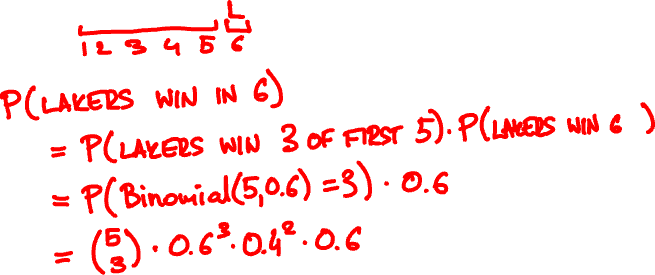 L
1 2 3 4 5 6
P(LAKERS WIN IN 6)
= P(LAKERS WIN 3 OF FIRST 5) · P(LAKERS WIN 6 )
= P(Binomial(5,0.6) = 3) · 0.6
= (5 3) · 0.6³ · 0.4² · 0.6